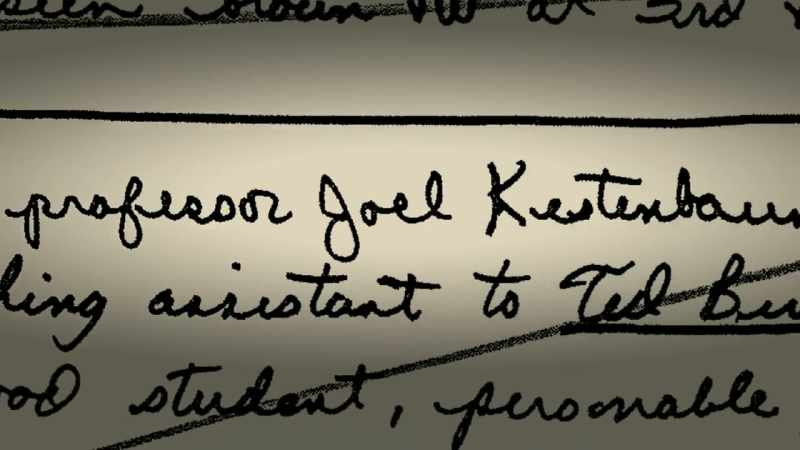 at 3rd
professor Joel Kestenbaum
assistant to Ted
student, personable